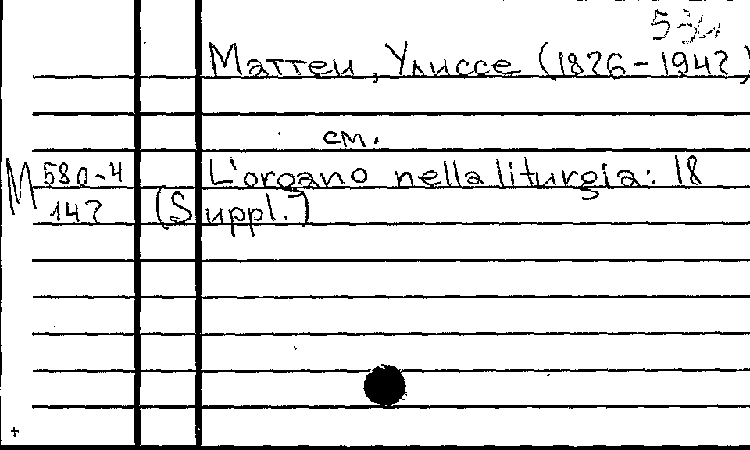 Маттеи, Улиссе (1876-1947)
см.
М 580-4 L'organo nella liturgia: 18
147 (Suppl.)